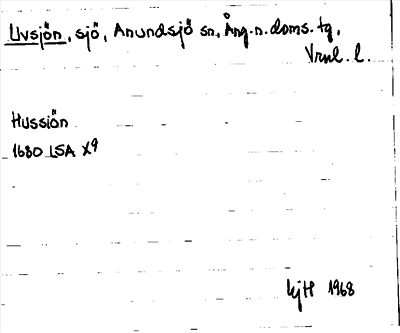 Uvsjön, sjö, Anundsjö sn, Ång.n.doms.tg,
Vrnl. l.
Hussiön
1680 LSA X9
KjH 1968